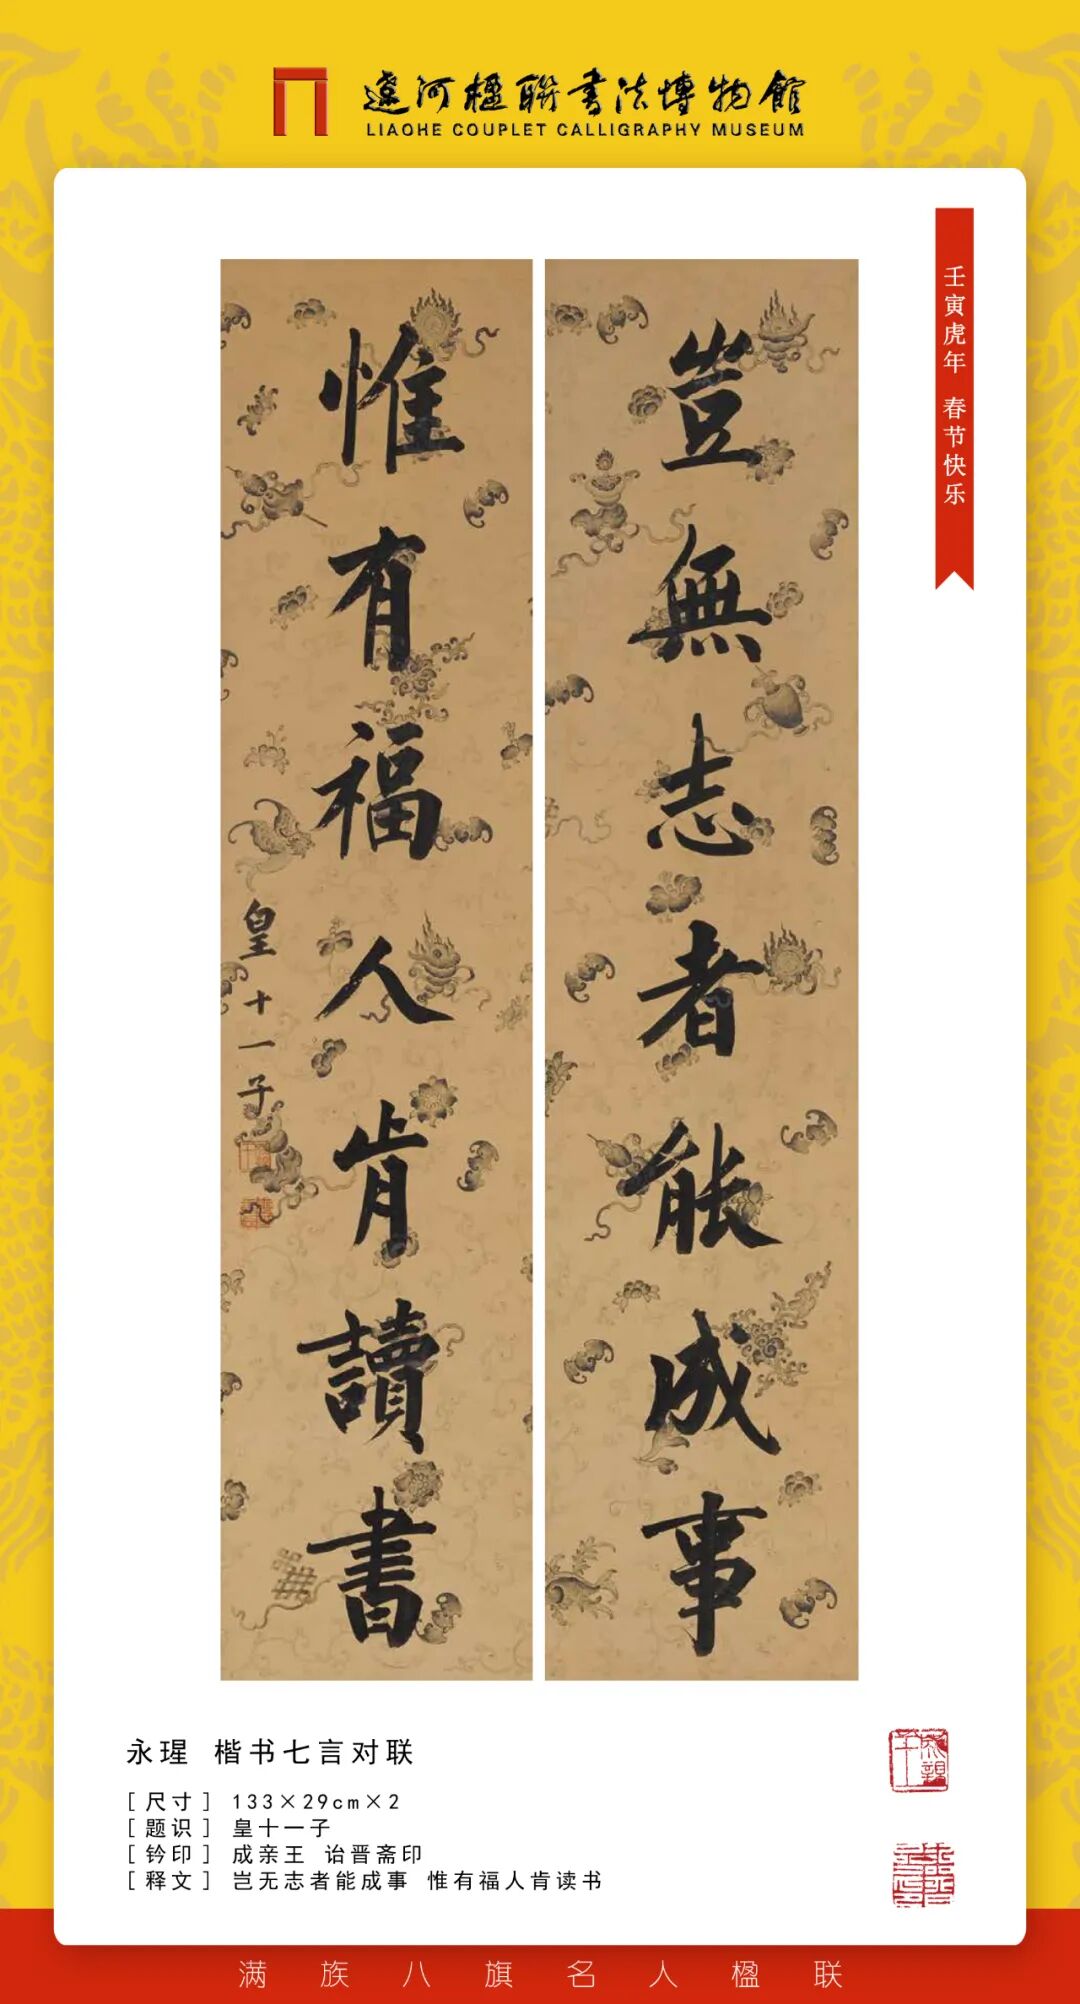 遼河楹聯書法博物館
LIAOHE COUPLET CALLIGRAPHY MUSEUM
壬寅虎年 春节快乐
豈無志者能成事
惟有福人肯讀書
皇十一子
永瑆 楷书七言对联
[尺寸] 133×29cm×2
[题识] 皇十一子
[钤印] 成亲王 诒晋斋印
[释文] 岂无志者能成事 惟有福人肯读书
满族八旗名人楹联